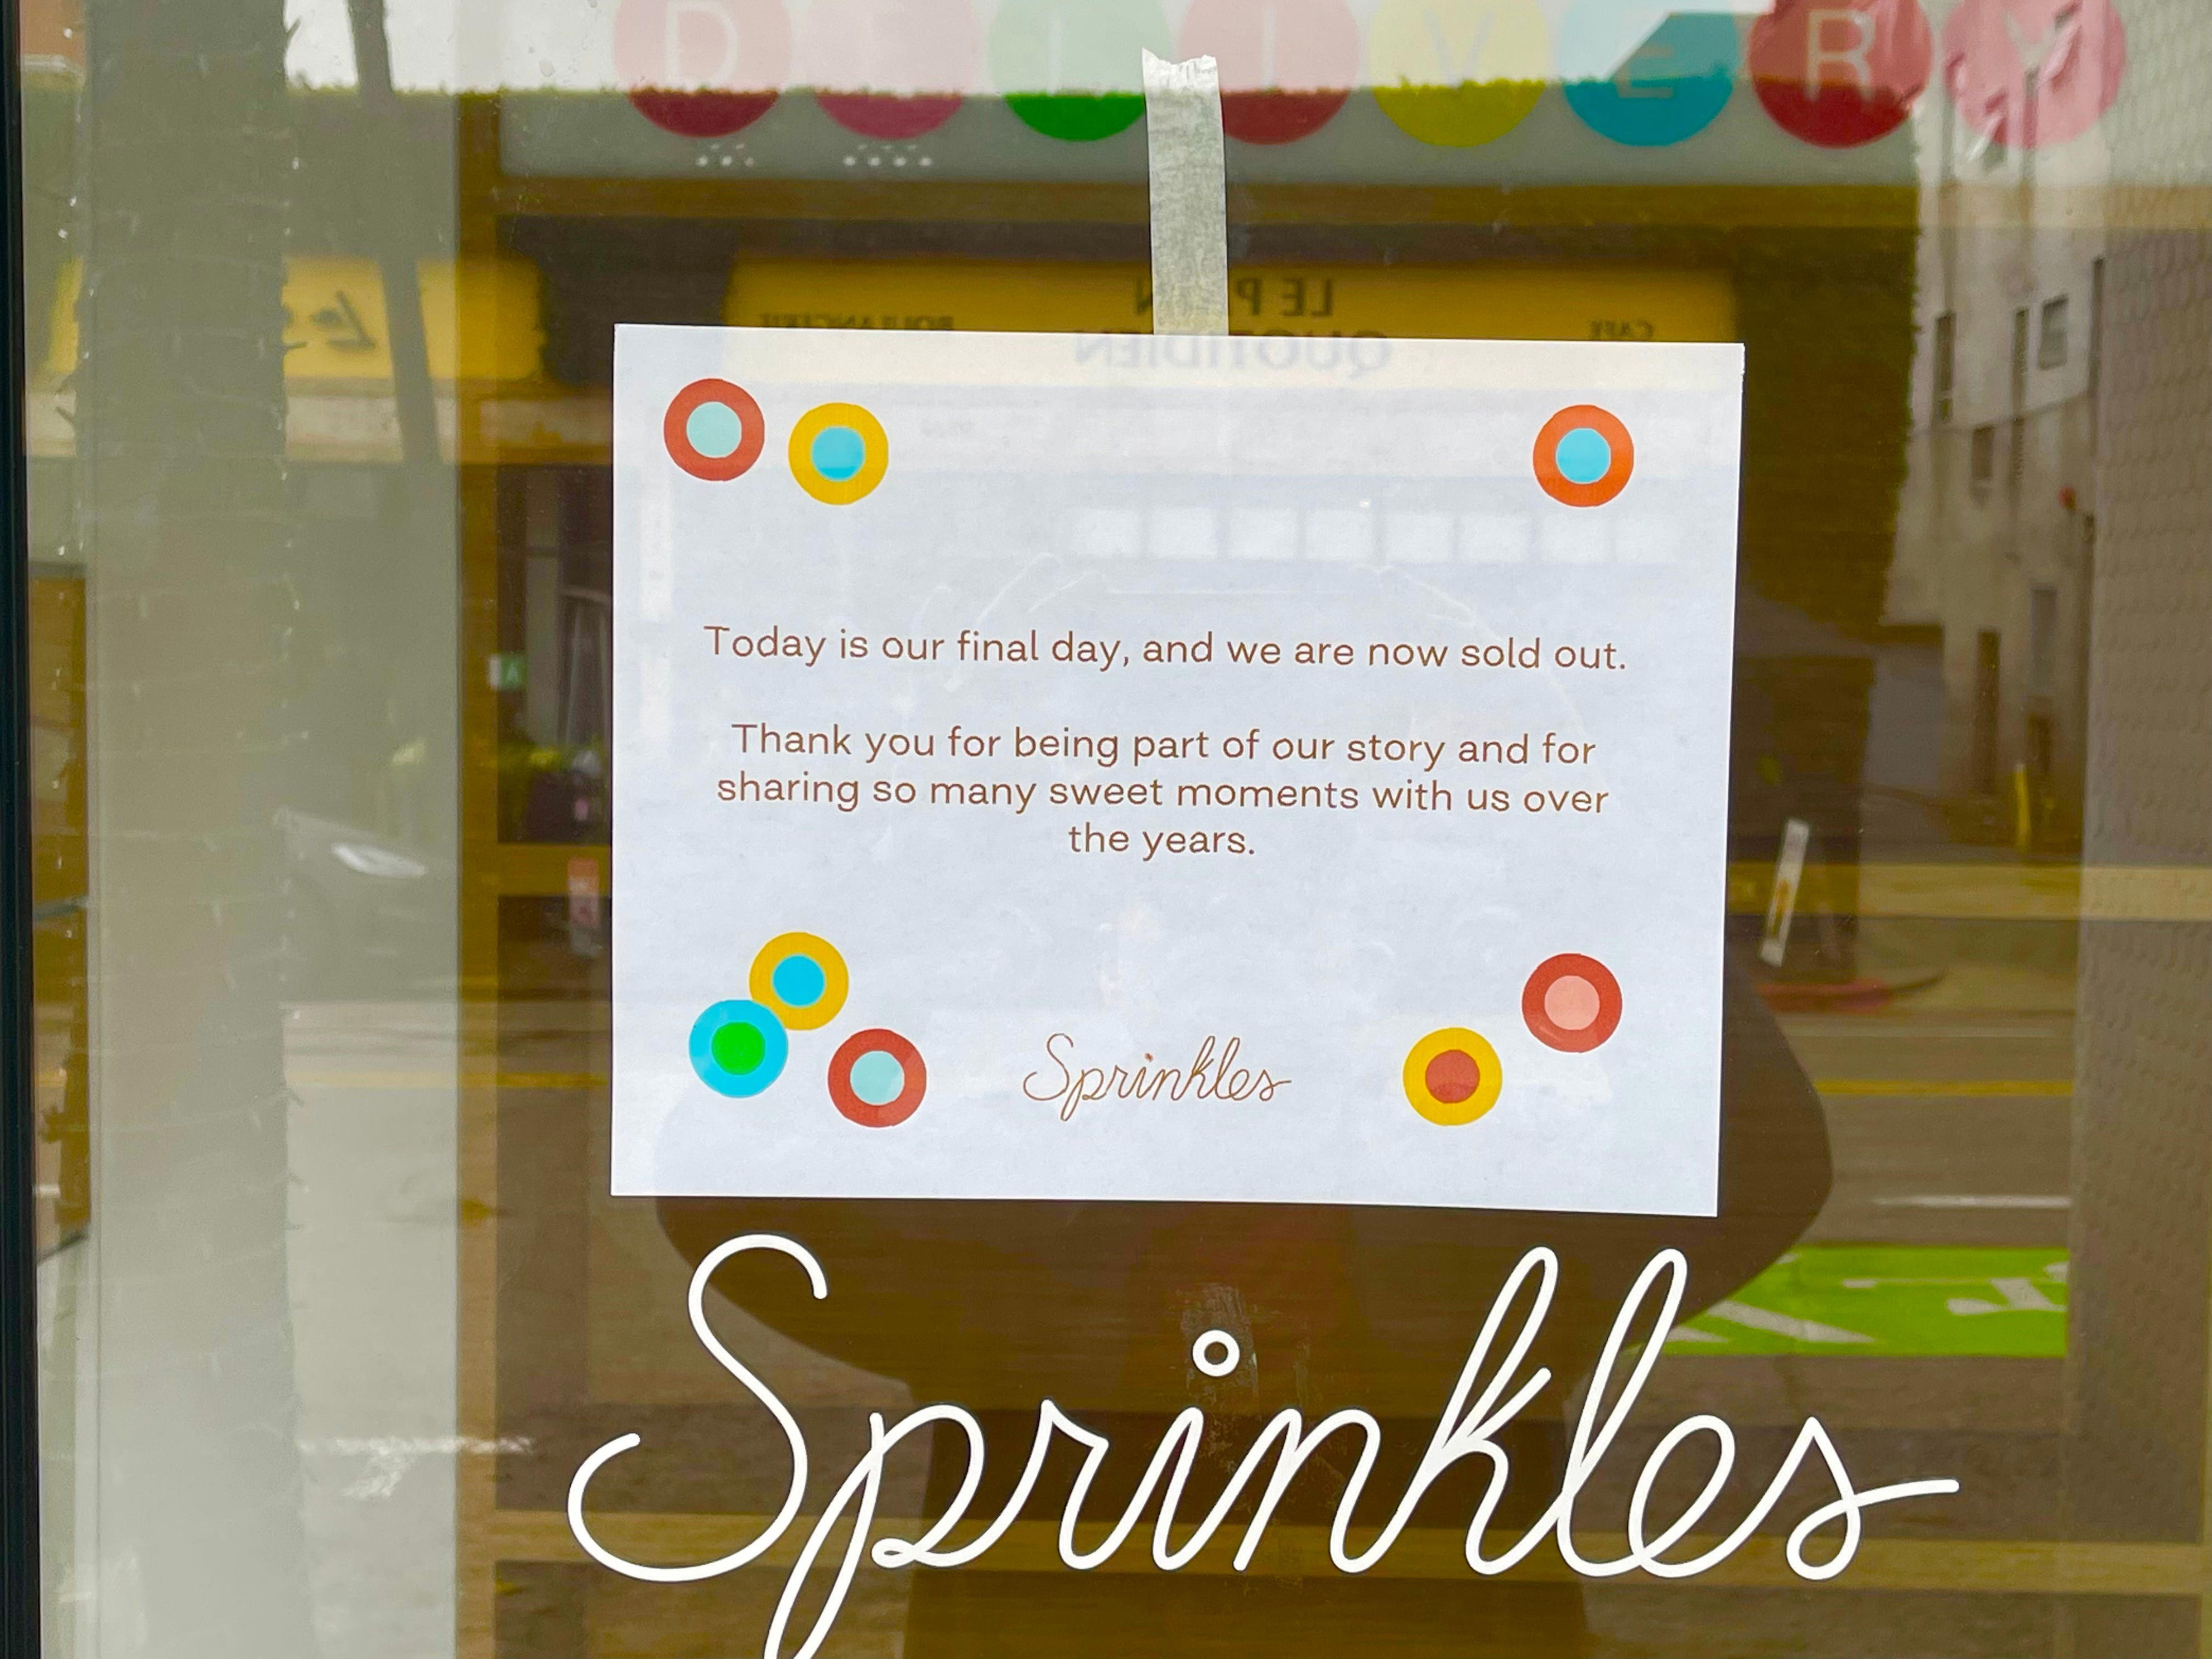 DELIVERY
LE P N
BOULANGERIE
CAFE
QUOTIDIEN
Today is our final day, and we are now sold out.
Thank you for being part of our story and for
sharing so many sweet moments with us over
the years.
Sprinkles
Sprinkles